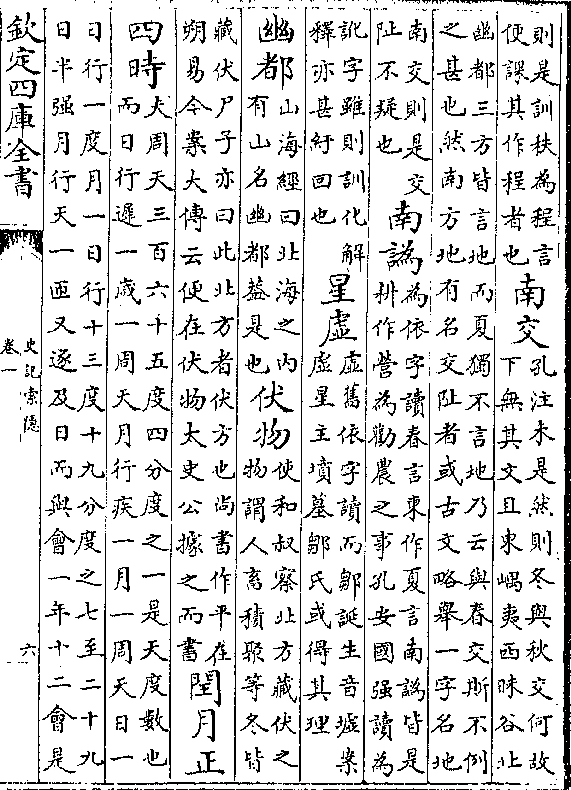 則是訓秩為程言
使課其作程者也
南交
孔注未是然則冬與秋交何故
下無其文且東嵎夷西昧谷北
幽都三方皆言地而夏獨不言地乃云與春交斯不例
之甚也然南方地有名交阯者或古文略舉一字名地
南交則是交
阯不疑也
南譌
為依字讀春言東作夏言南譌皆是
耕作營為勸農之事孔安國强讀為
訛字雖則訓化解
釋亦甚紆回也
星虛
虛舊依字讀而鄒誕生音墟案
虛星主墳墓鄒氏或得其理
幽都
山海經曰北海之内
有山名幽都蓋是也
伏物
使和叔察北方藏伏之
物謂人畜積聚等冬皆
藏伏尸子亦曰此北方者伏方也尚書作平在
朔易今案大傳云便在伏物太史公據之而書
閏月正
四時
夫周天三百六十五度四分度之一是天度數也
而日行遲一歲一周天月行疾一月一周天日一
日行一度月一日行十三度十九分度之七至二十九
日半强月行天一匝又逐及日而與會一年十二會是
欽定四庫全書
史記索隱
卷一
六